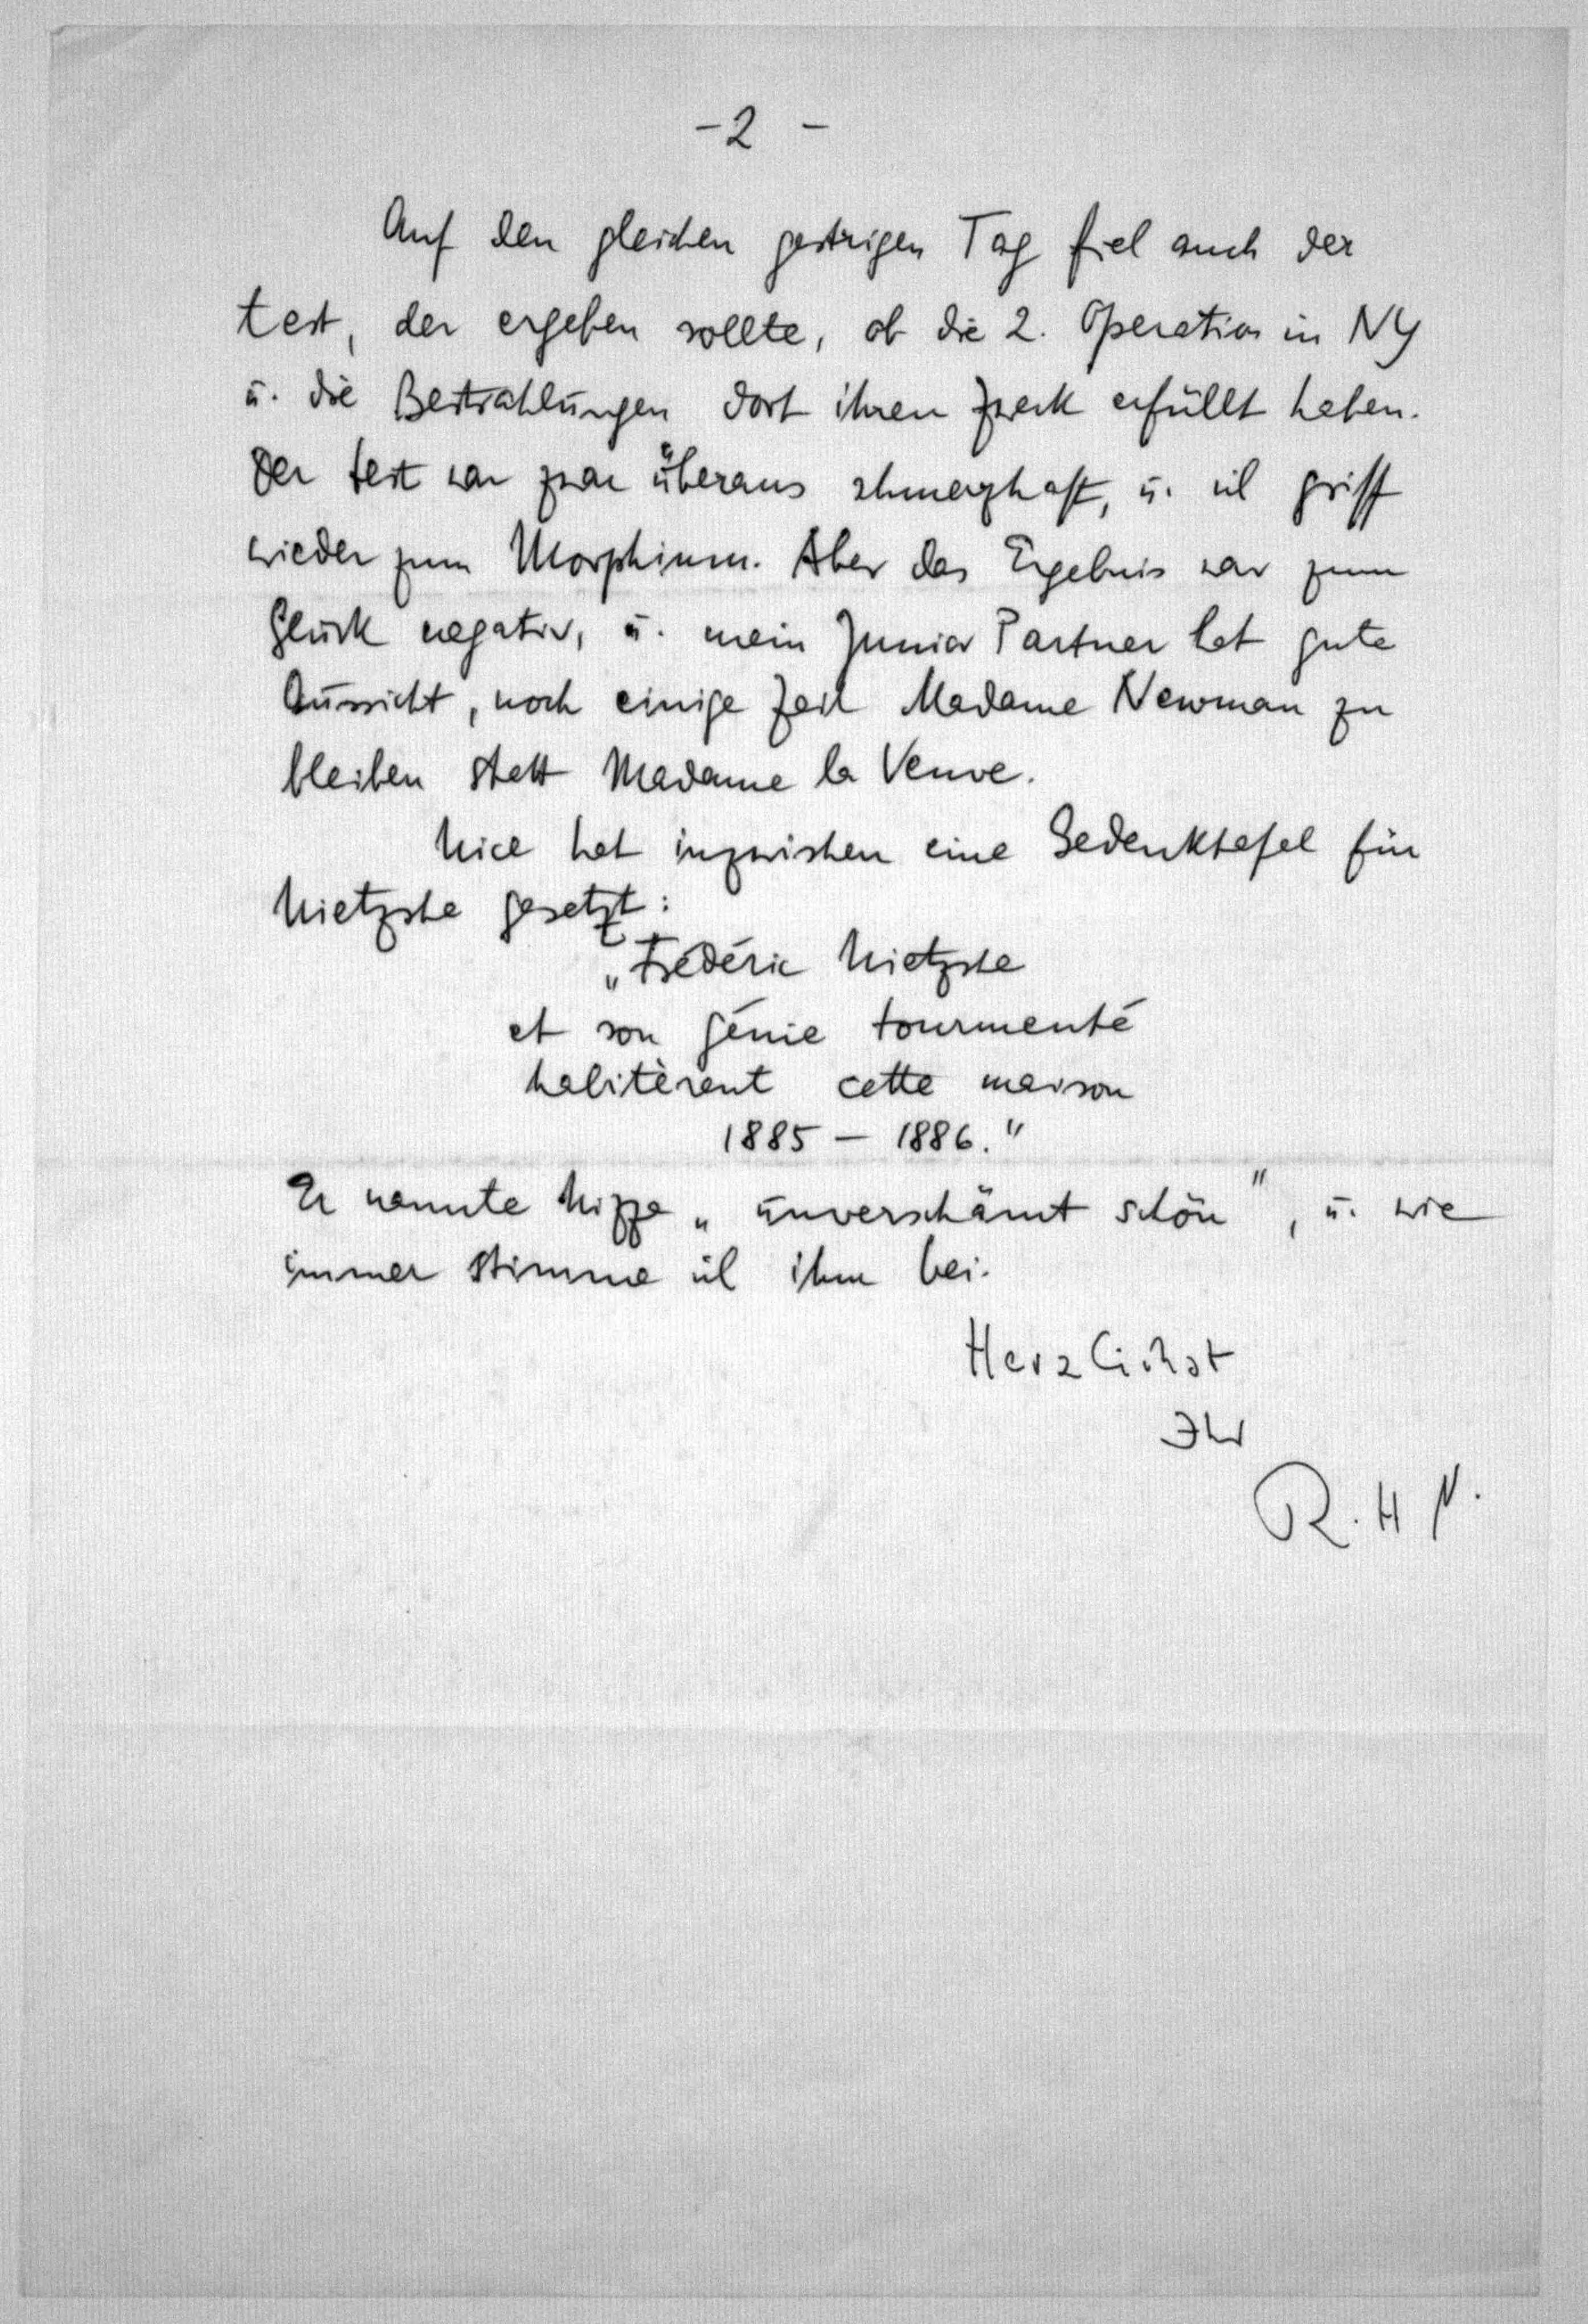 - 2 -
Auf den gleichen gestrigen Tag fiel auch der
test, der ergeben sollte, ob die 2. Operation in NY
u. die Bestrahlungen dort ihren Zweck erfüllt haben.
Der test war zwar überaus schmerzhaft, u. ich griff
wieder zum Morphium. Aber das Ergebnis war zum
Glück negativ, u. mein Junior Partner hat gute
Aussicht, noch einige Zeit Madame Newman zu
bleiben statt Madame la Veuve.
Nice hat inzwischen eine Gedenktafel für
Nietzsche gesetzt:
„Frédéric Nietzsche
et son génie tourmenté
habitèrent cette maison
1885 – 1886."
Er nannte Nizza „unverschämt schön", u. wie
immer stimme ich ihm bei.
Herzlichst
Ihr
R. H N.